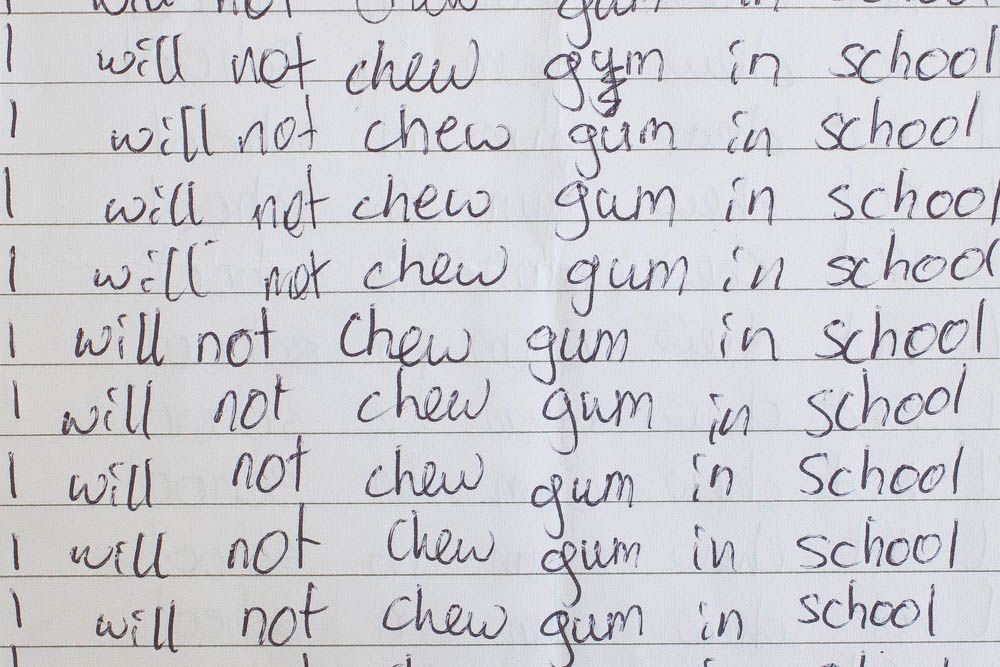 I will not chew gum in school
I will not chew gum in school
I will not chew gum in school
I will not chew gum in school
I will not chew gum in school
I will not chew gum in school
I will not chew gum in school
I will not chew gum in school
I will not chew gum in school
I will not chew gum in school